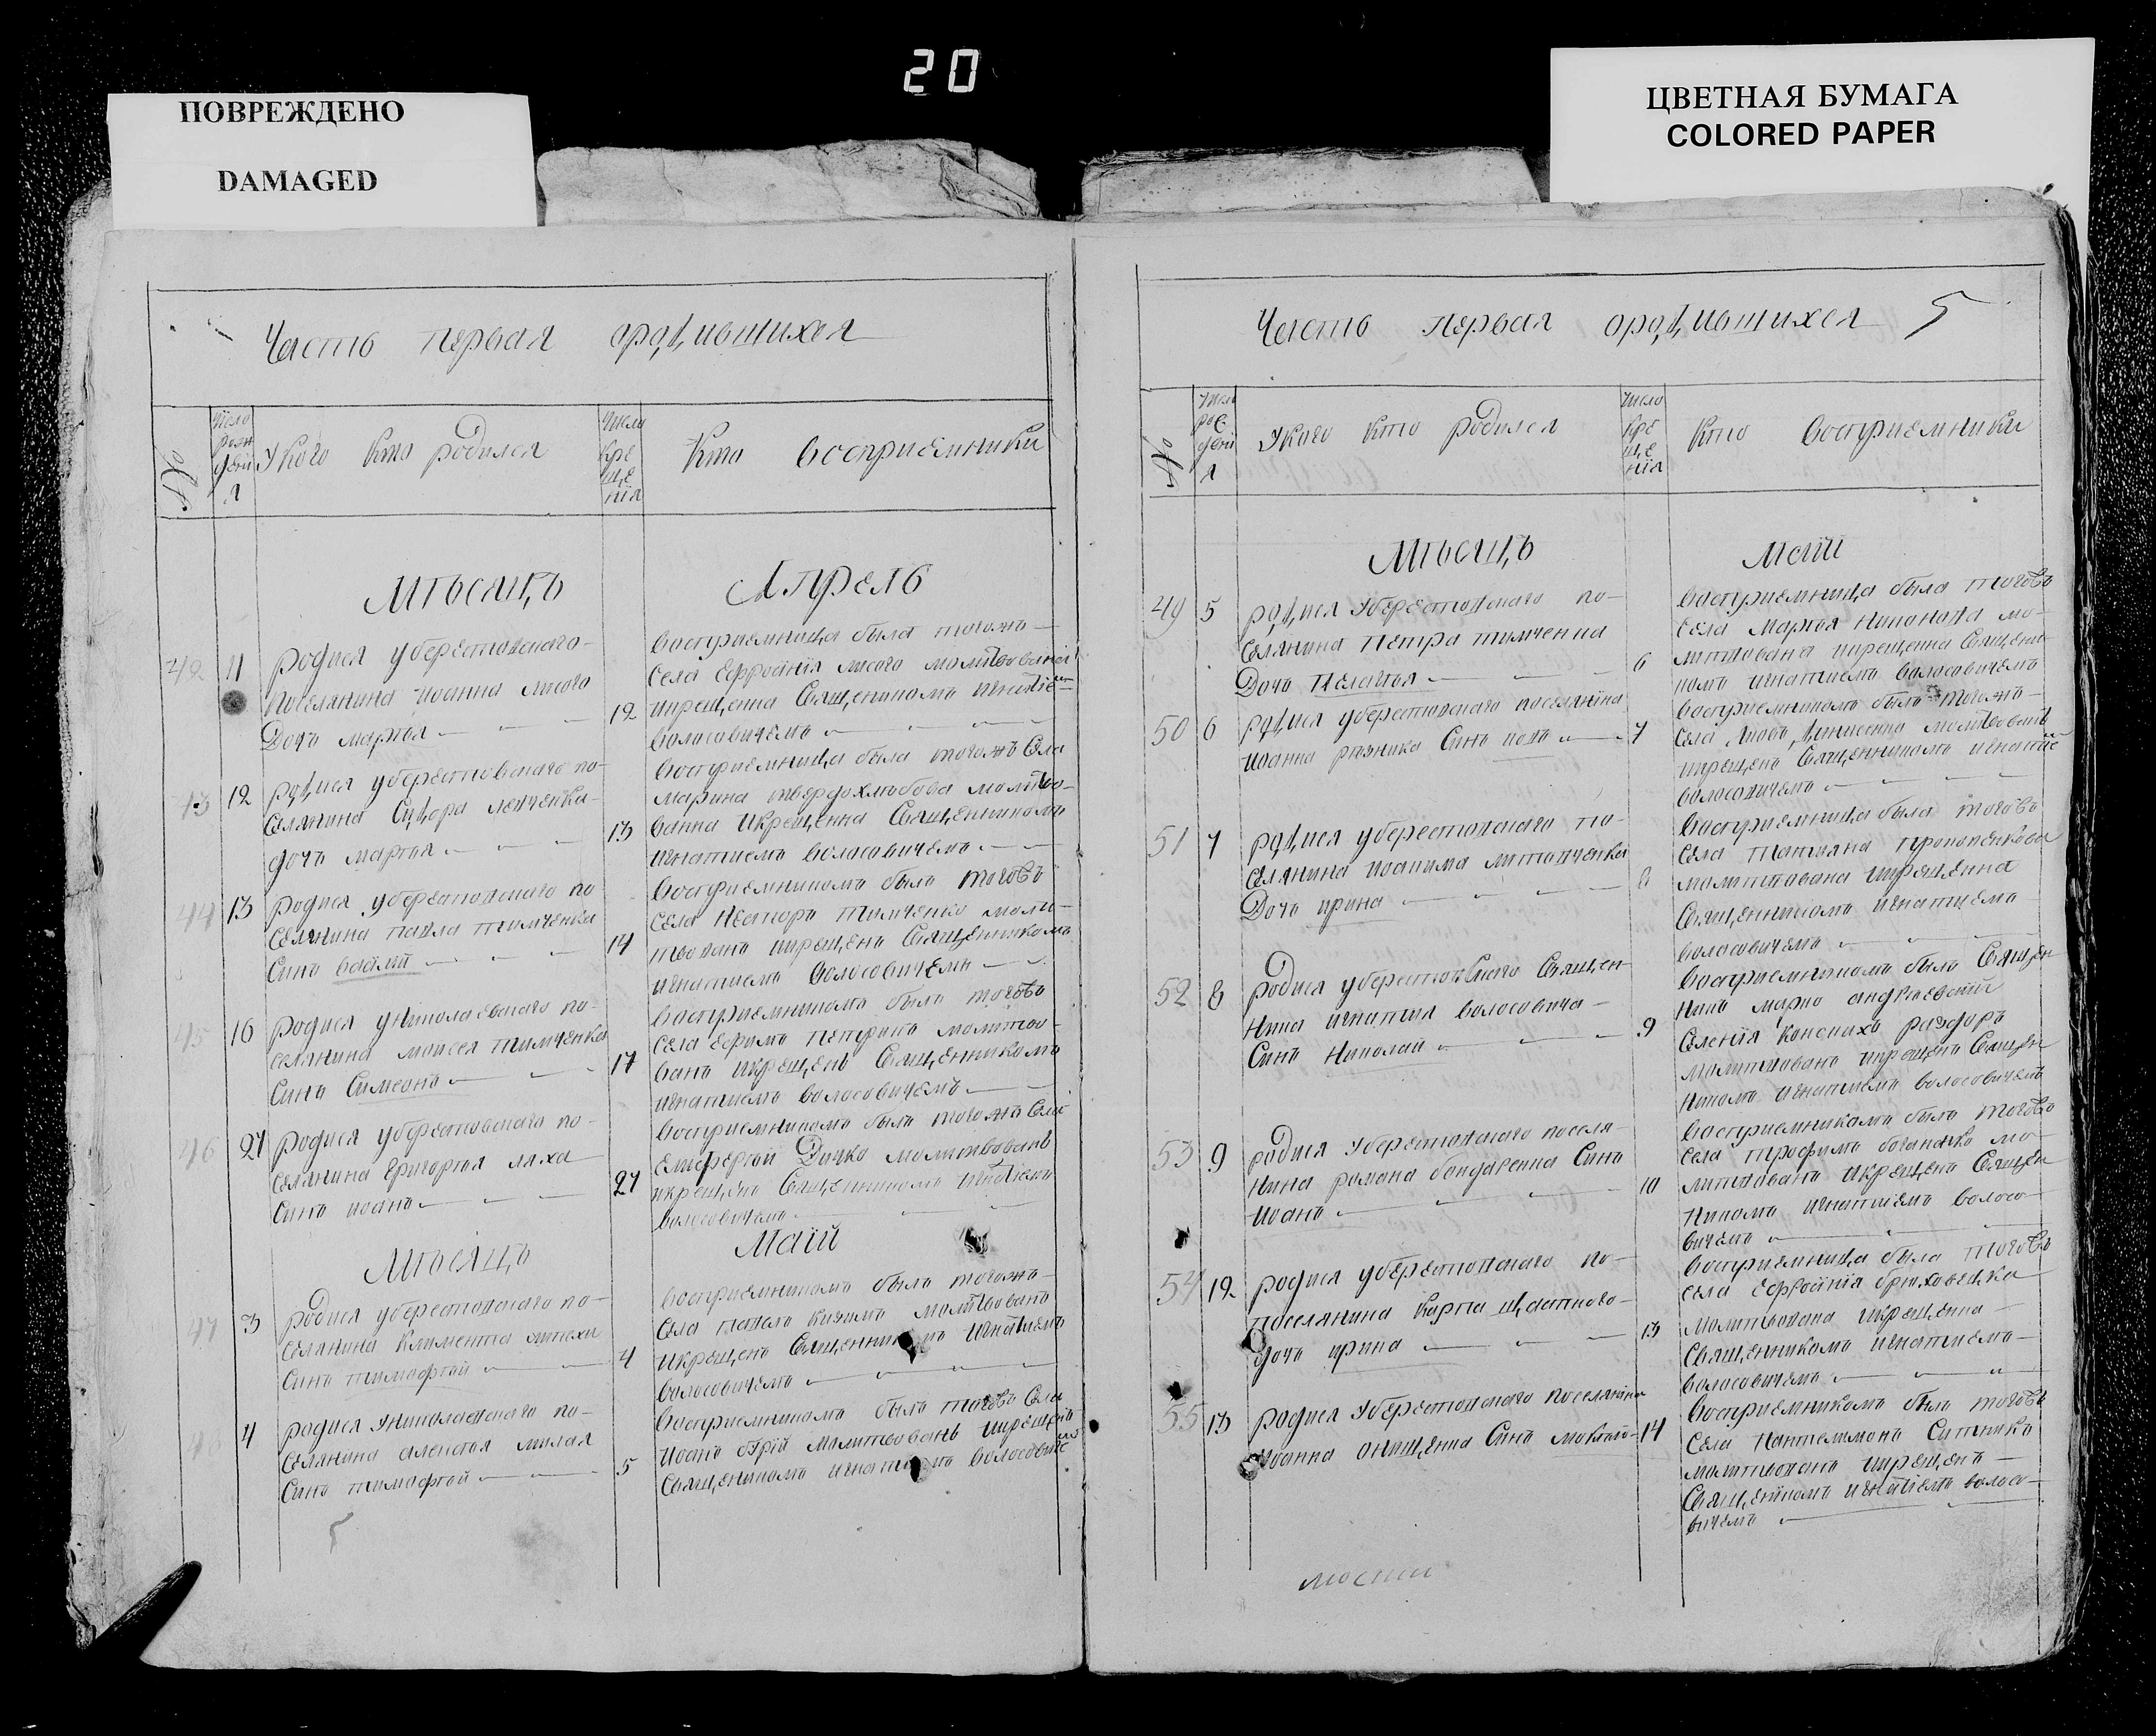 20
ПОВРЕЖДЕНО
DAMAGED
ЦВЕТНАЯ БУМАГА
COLORED PAPER
Часть первая ородившихся
№
Число рождения
У кого кто родился
Число крещения
Кто восприемники
Месяцъ Апрель
42 11
родися уберестовского
поселянина иоанна лисого
Дочь марфа
12
восприемница была тогожъ
села Ефросиния лисого молитвованна
икрещенна Священикомъ игнатием
волосовичемъ
43 12
родися уберестовского по
селянина Сидора
дочь марфа
13
восприемница была тогожъ Села
марина твердохлебова молитво-
ванна Икрещенна Священникомъ
игнатиемъ волосовичемъ
44 13
родися уберестовского по
селянина павла тимченка
Синъ васлий
14
восприемникомъ былъ тогожъ
села Несторъ тимченко моли-
твованъ икрещенъ Священникомъ
игнатиемъ волосовичемъ
45 16
родися униколаевского по-
селянина моисея тимченка
Синъ Симеонъ
17
восприемникомъ былъ тогожъ
села Ефимъ петрикъ молитво-
ванъ икрещенъ Священникомъ
игнатиемъ волосовичемъ
46 27
родися уберестовского по-
селянина григория ляха
Синъ иоанъ
27
восприемникомъ былъ тогожъ Села
Дичко молитвованъ
икрещенъ Священникомъ игнатиемъ
волосовичемъ
Месяцъ Маiй
47 3
родися уберестовского по-
селянина климента
Синъ тимофтей
4
восприемникомъ былъ тогожъ
Села павелъ молитвованъ
икрещенъ Священникомъ игнатиемъ
волосовичемъ
48 4
родися униколаевского по-
селянина алексея
Синъ тимофтей
5
восприемникомъ былъ тогожъ Села
иоанъ молитвованъ икрещенъ
Священикомъ игнатиемъ
Часть первая ородившихся 5
№
Число рождения
У кого кто родился
Число крещения
Кто восприемники
Месяцъ Маiй
49 5
родися уберестовского по-
селянина Петра тимченка
Дочь Пелагия
6
восприемница была тогожъ
села Марфа мо-
литвована икрещенна Священи-
комъ игнатиемъ волосовичемъ
50 6
родися уберестовского поселянина
иоанна резника Синъ иовъ
7
восприемникомъ былъ тогожъ
села Денисенко молитвованъ
икрещенъ Священникомъ игнатие
волосовичемъ
51 7
родися уберестовского по-
селянина иоакима литовченка
Дочь ирина
8
восприемница была тогожъ
села татияна прокопенкова
молитвована икрещенна
Священникомъ игнатиемъ
волосовичемъ
52 8
родися уберестовского Священ
ника игнатия волосовича
Синъ Николай
9
восприемникомъ былъ Священ
никъ марко андреевский
селения раздоръ
молитвованъ икрещенъ Священ
никомъ игнатиемъ волосовичемъ
53 9
родися уберестовского поселя-
нина романа бондаренка Синъ
иоанъ
10
восприемникомъ былъ тогожъ
села трофимъ мо-
литвованъ икрещенъ Священ
никомъ игнатиемъ волосо-
вичемъ
54 12
родися уберестовского по-
поселянина карпа щастного
дочь ирина
13
восприемница была тогожъ
села Ефросиния брюховецка
молитвована икрещенна
Священникомъ игнатиемъ
волосовичемъ
55 13
родися уберестовского поселянина
иоанна онищенка Синъ
14
восприемникомъ былъ тогожъ
села Пантелимонъ Ситникъ
молитвованъ икрещенъ
Священикомъ игнатиемъ волосо-
вичемъ